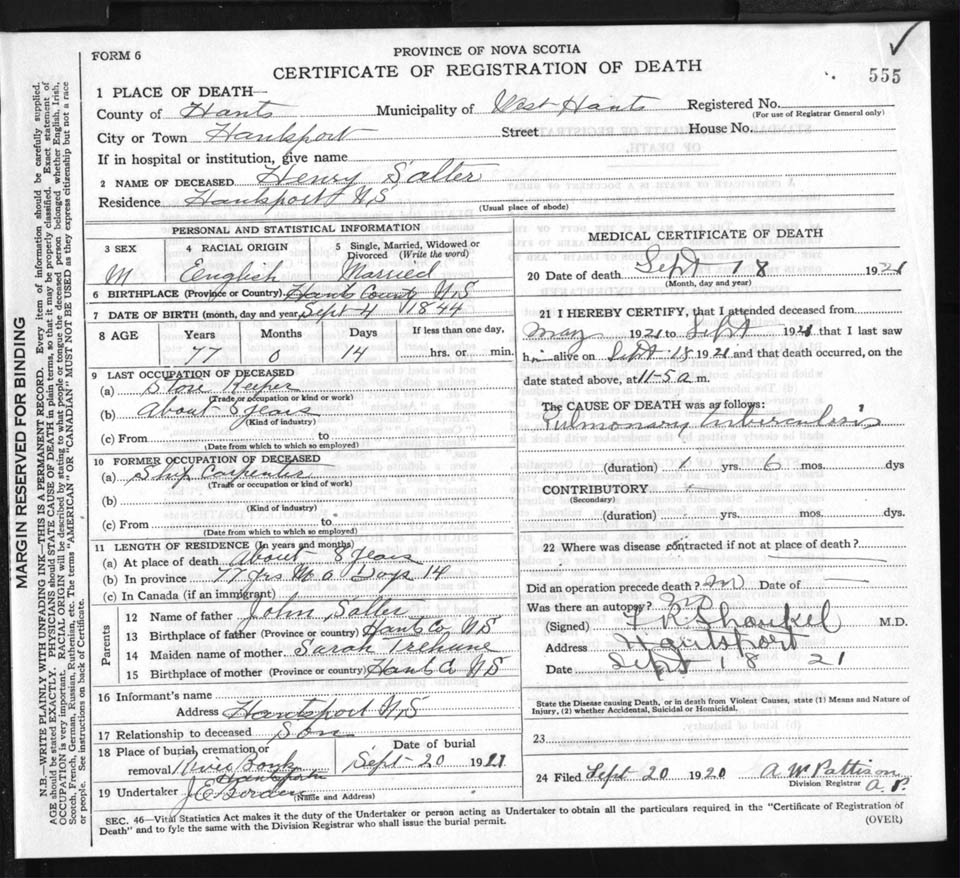 FORM 6
PROVINCE OF NOVA SCOTIA
CERTIFICATE OF REGISTRATION OF DEATH
555
1 PLACE OF DEATH—
County of Hants Municipality of West Hants Registered No.
(For use of Registrar General only)
City or Town Hantsport Street House No.
If in hospital or institution, give name
2 NAME OF DECEASED Henry Salter
Residence Hantsport N S
(Usual place of abode)
PERSONAL AND STATISTICAL INFORMATION
3 SEX 4 RACIAL ORIGIN 5 Single, Married, Widowed or Divorced (Write the word)
M English Married
6 BIRTHPLACE (Province or Country) Hants County N S
7 DATE OF BIRTH (month, day and year) Sept 4 1844
8 AGE Years Months Days If less than one day,
77 0 14 hrs. or min.
9 LAST OCCUPATION OF DECEASED
(a) Store Keeper
(Trade or occupation or kind of work)
(b) About 8 years
(Kind of industry)
(c) From to
(Date from which to which so employed)
10 FORMER OCCUPATION OF DECEASED
(a) Ship Carpenter
(Trade or occupation or kind of work)
(b)
(Kind of industry)
(c) From to
(Date from which to which so employed)
11 LENGTH OF RESIDENCE (In years and months)
(a) At place of death About 8 years
(b) In province 77 yrs M 0 Days 14
(c) In Canada (if an immigrant)
Parents
12 Name of father John Salter
13 Birthplace of father (Province or country) Hants Co N S
14 Maiden name of mother Sarah
15 Birthplace of mother (Province or country) Hants Co N S
16 Informant's name
Address Hantsport N S
17 Relationship to deceased Son
18 Place of burial, cremation or removal River Bank Hantsport
Date of burial
Sept 20 1921
19 Undertaker J E Borden
(Name and Address)
MEDICAL CERTIFICATE OF DEATH
20 Date of death Sept 18 1921
(Month, day and year)
21 I HEREBY CERTIFY, that I attended deceased from
May 1921 to Sept 1921 that I last saw
h alive on Sept 18 1921 and that death occurred, on the
date stated above, at 11-5 a m.
The CAUSE OF DEATH was as follows:
Pulmonary tuberculosis
(duration) 1 yrs. 6 mos. dys
CONTRIBUTORY
(Secondary)
(duration) yrs. mos. dys.
22 Where was disease contracted if not at place of death?
Did an operation precede death? no Date of
Was there an autopsy? no
(Signed) M.D.
Address Hantsport
Date Sept 18 21
State the Disease causing Death, or in death from Violent Causes, state (1) Means and Nature of
Injury, (2) whether Accidental, Suicidal or Homicidal.
23
24 Filed Sept 20 1920 A W Pattison
Division Registrar
SEC. 46—Vital Statistics Act makes it the duty of the Undertaker or person acting as Undertaker to obtain all the particulars required in the "Certificate of Registration of
Death" and to fyle the same with the Division Registrar who shall issue the burial permit. (OVER)
MARGIN RESERVED FOR BINDING
N.B.—WRITE PLAINLY WITH UNFADING INK—THIS IS A PERMANENT RECORD. Every item of information should be carefully supplied.
AGE should be stated EXACTLY. PHYSICIANS should STATE CAUSE OF DEATH in plain terms, so that it may be properly classified. Exact statement of
OCCUPATION is very important. RACIAL ORIGIN will be described by stating to what people or tongue the deceased person belonged whether English, Irish,
Scotch, French, German, Russian, Ruthenian, etc. The terms "AMERICAN" OR "CANADIAN" MUST NOT BE USED as they express citizenship but not a race
or people. See instructions on back of Certificate.